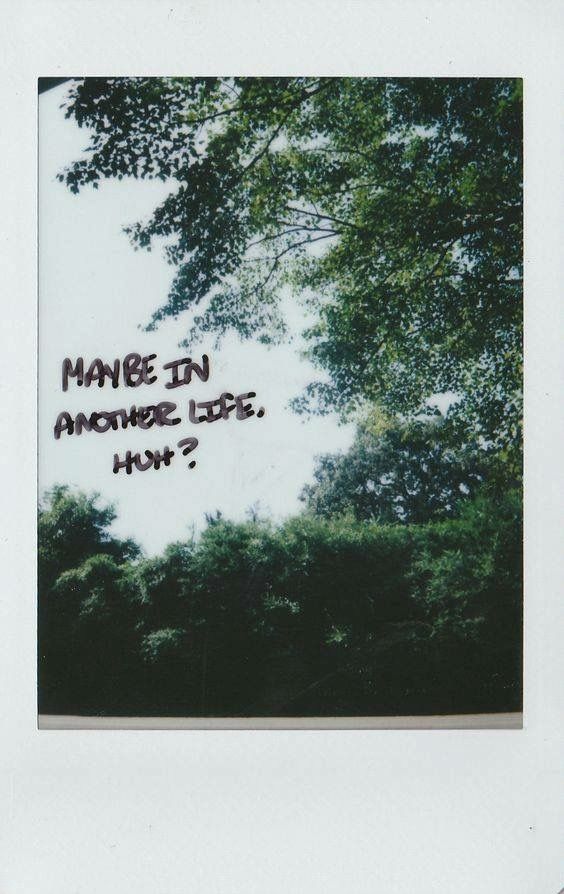 MAYBE IN
ANOTHER LIFE,
HUH?